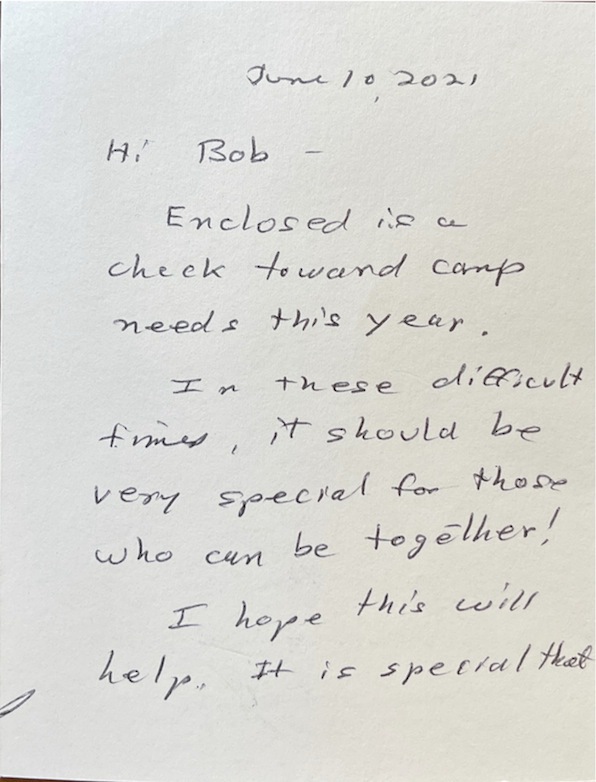 June 10, 2021
Hi Bob -
Enclosed is a
check toward camp
needs this year.
In these difficult
times, it should be
very special for those
who can be together!
I hope this will
help. It is special that